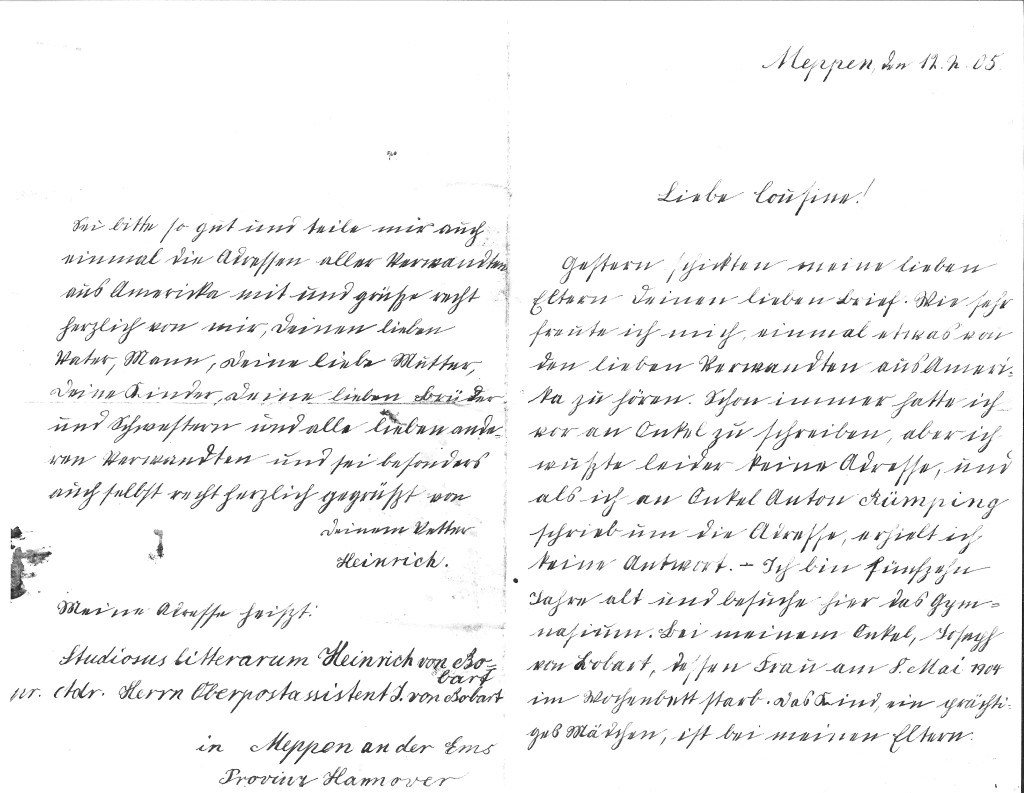 Meppen, den 12. 2. 05.
Liebe Cousine!
Gestern schickten meine lieben
Eltern Deinen lieben Brief. Wie sehr
freute ich mich, einmal etwas von
den lieben Verwandten aus Ameri-
ka zu hören. Schon immer hatte ich
vor an Onkel zu schreiben, aber ich
wußte leider keine Adresse, und
als ich an Onkel Anton Rümping
schrieb um die Adresse, erhielt ich
keine Antwort. – Ich bin fünfzehn
Jahre alt und besuche hier das Gym=
nasium. Bei meinem Onkel, Joseph
von Bobart, dessen Frau am 8. Mai 1904
im Wochenbett starb. Das Kind, ein prächti-
ges Mädchen, ist bei meinen Eltern.
Sei bitte so gut und teile mir auch
einmal die Adressen aller Verwandten
aus Americka mit und grüße recht
herzlich von mir, Deinen lieben
Vater, Mann, Deine liebe Mutter,
Deine Kinder, Deine lieben Brüder
und Schwestern und alle lieben ande-
ren Verwandten und sei besonders
auch selbst recht herzlich gegrüßt von
Deinem Vetter
Heinrich.
Meine Adresse heißt:
Studiosus litterarum Heinrich von Bo=
bart
nr. Adr. Herrn Oberpostassistent J. von Bobart
in Meppen an der Ems
Provinz Hannover